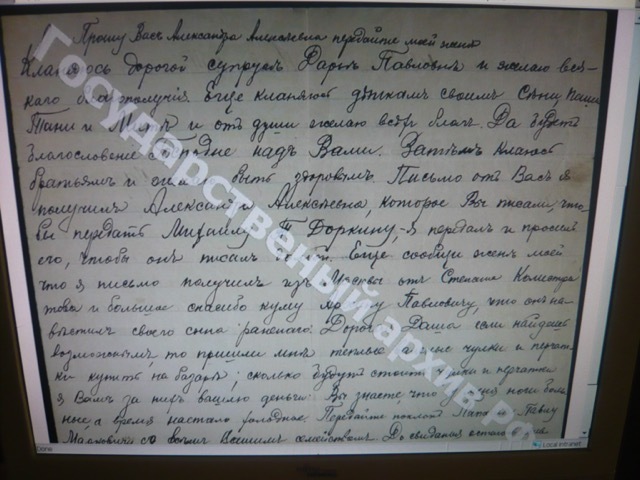 Прошу Васъ Александра Алексѣевна передайте моей женѣ
Кланяюсь дорогой супругѣ Дарьѣ Павловнѣ и желаю вся-
каго благополучія. Еще кланяюсь дѣткамъ своимъ Сѣнѣ, Паши
Тани и и отъ души желаю всѣхъ благъ. Да будетъ
благословеніе Господне надъ Вами. Затѣмъ кланяюсь
братьямъ и быть здоровымъ Письмо отъ Васъ я
получилъ Александра Алексѣевна, которое Вы писали, что-
бы передать Михаилу Т. Доркину, я передалъ и просилъ
его, чтобы онъ писалъ Еще сообщи женѣ моей
что я письмо получилъ изъ Москвы отъ Степана
и большое спасибо куму Павловичу, что онъ на-
вѣстилъ своего сына раненаго. Дорогая Даша если найдешь
возможнымъ, то пришли мнѣ теплые чулки и перчат-
ки купить на базарѣ; сколько будутъ стоить чулки и перчатки
я Вамъ за нихъ вышлю деньги. Вы знаете, что у меня ноги боль-
ные, а время настало холодное. Передайте поклонъ Павлу
со всѣмъ Вашимъ семействомъ. До свиданія
Государственный архив.РФ
Done
Local intranet